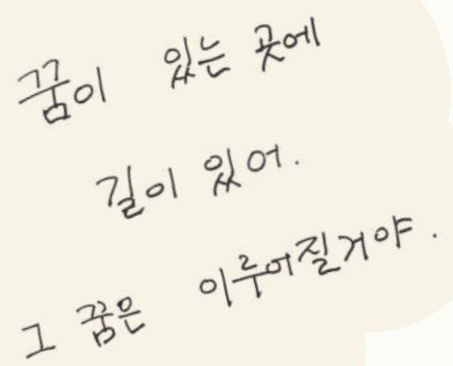 꿈이 있는 곳에
길이 있어.
그 꿈은 이루어질거야.